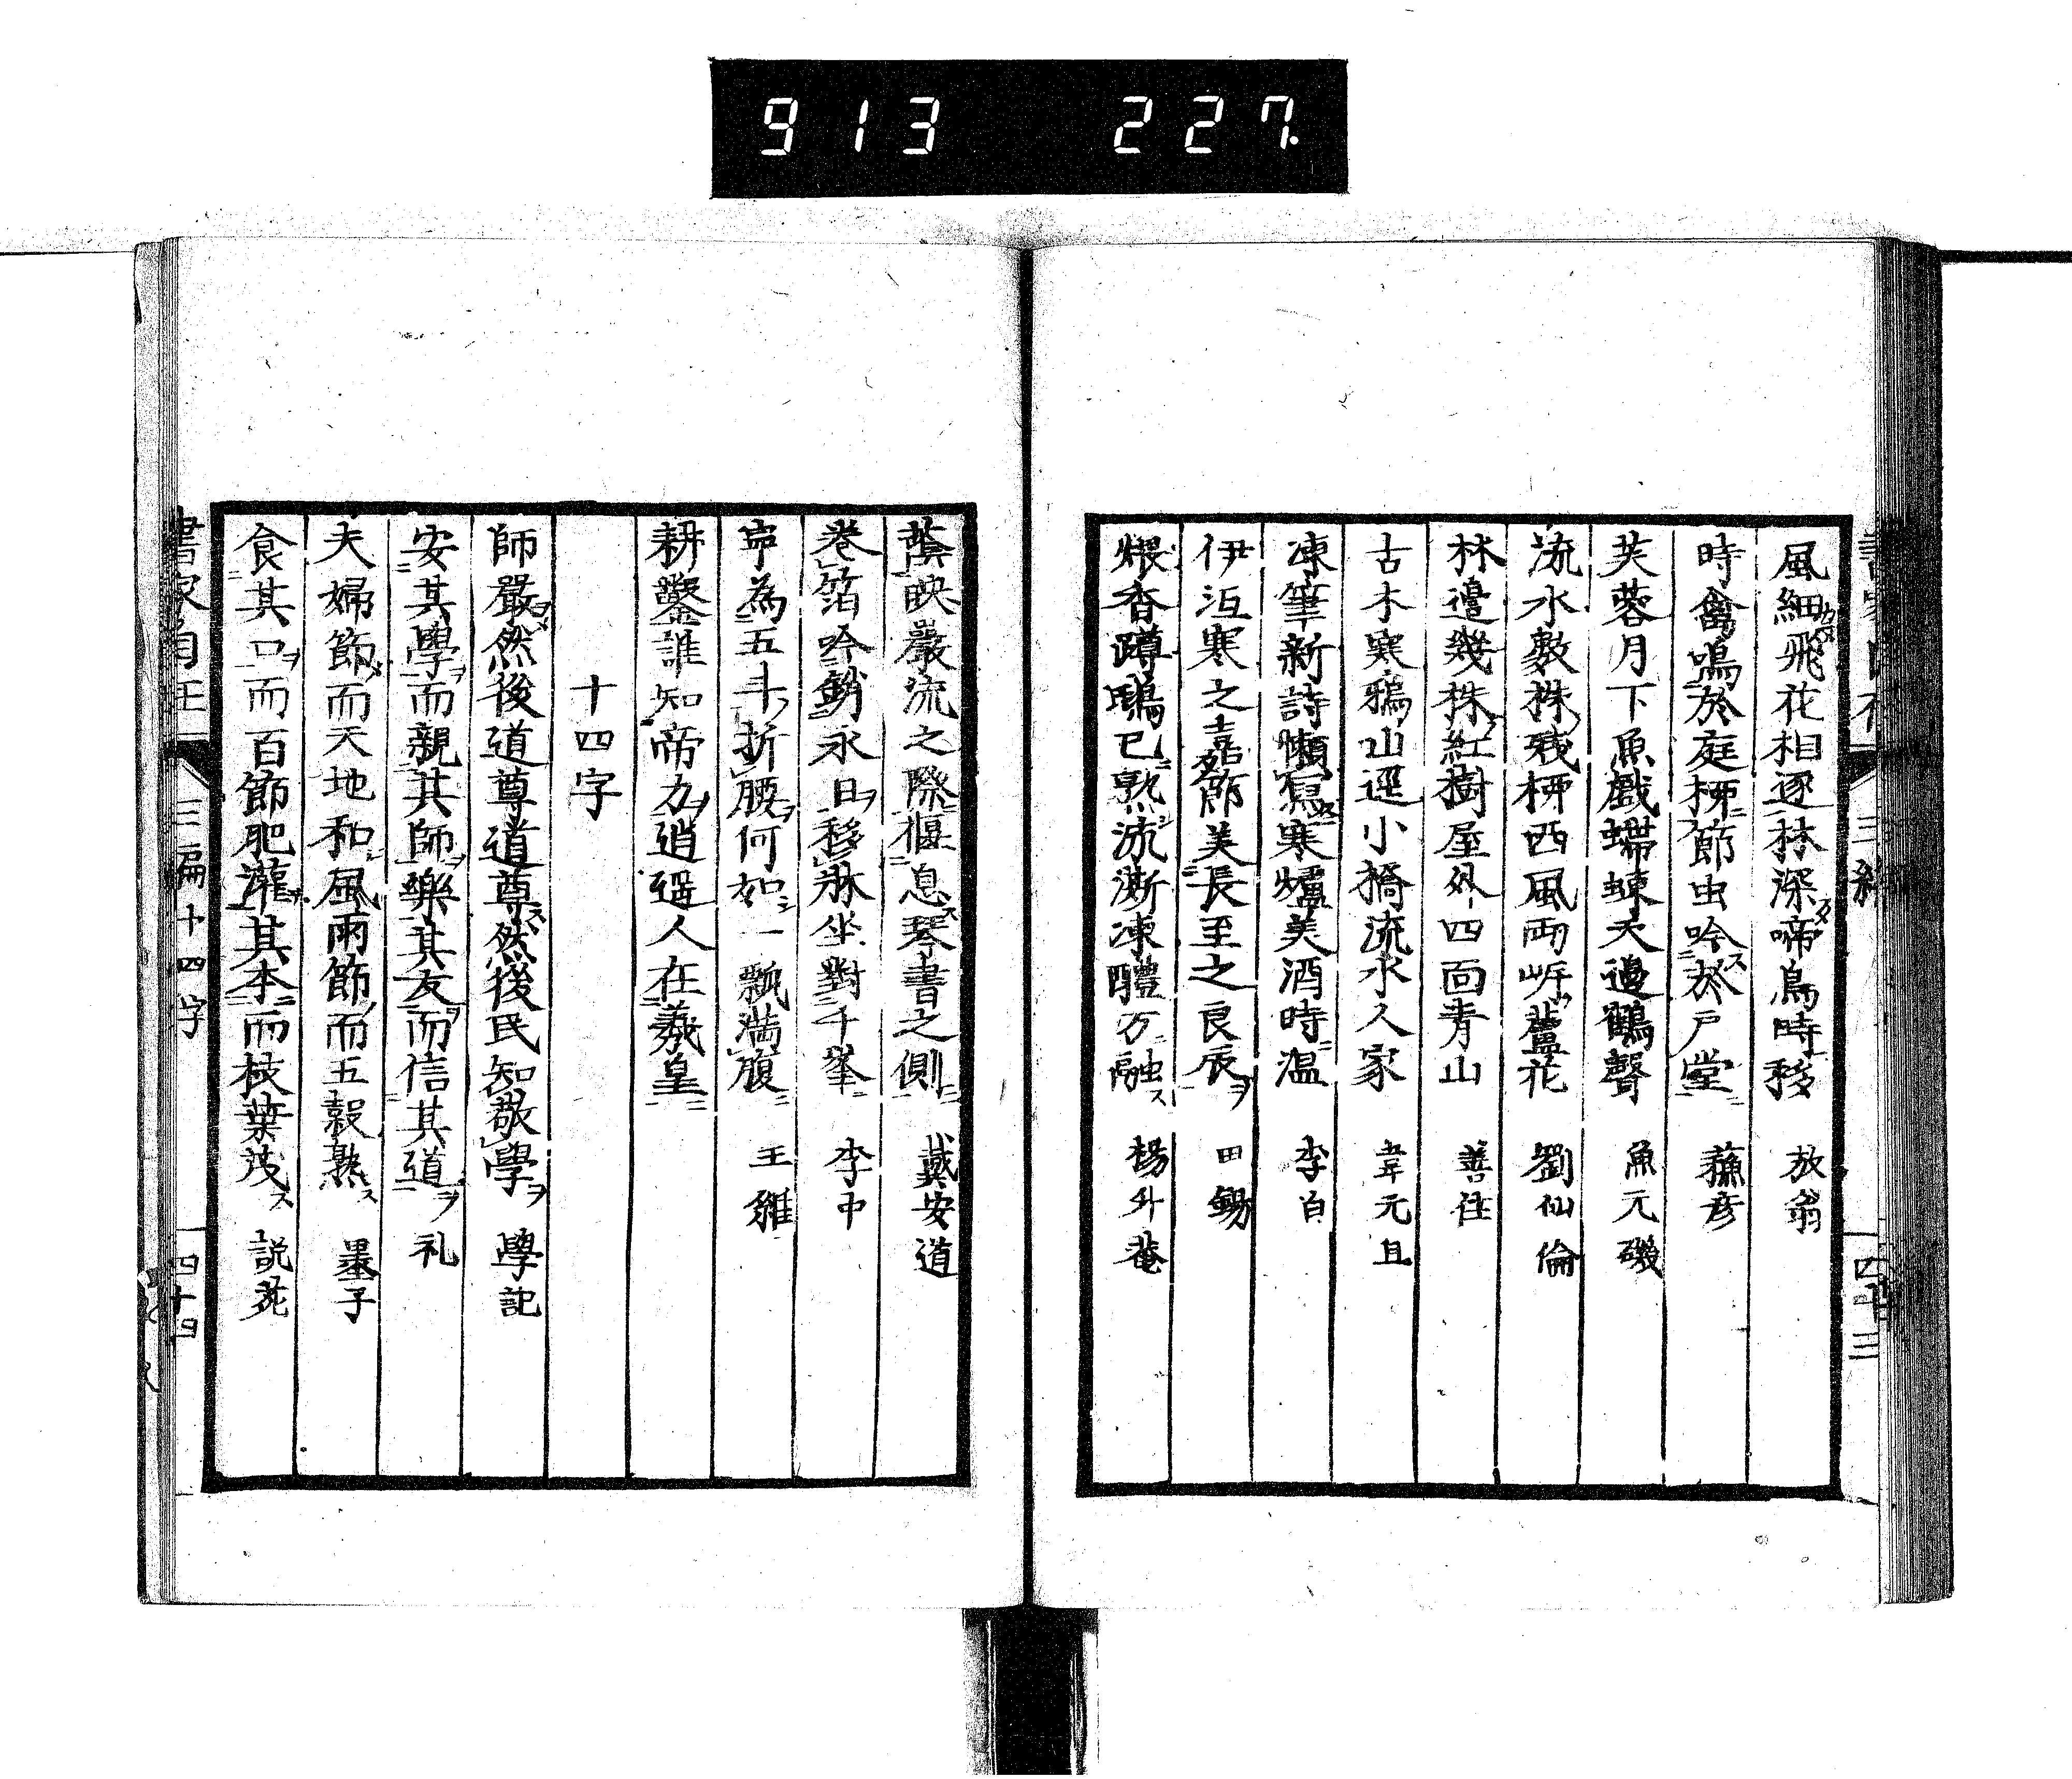 913 227.
風細飛花相逐林深啼鳥時移 放翁
時禽鳴於庭柳節虫吟於戸堂 蘇彦
芙蓉月下魚戲螮蝀天邊鶴聲 魚元磯
流水數株殘柳西風両岍蘆花 劉仙倫
林邉幾株紅樹屋外四面青山 善住
古木寒鴉山逕小橋流水人家 韋元旦
凍筆新詩懶寫寒爐美酒時温 李白
伊沍寒之嘉節美長至之良辰 田錫
煨香蹲鴟已熟流澌凍醴方融 楊升菴
蔭映巖流之際偃息琴書之側 戴安道
巻箔吟銷永日移牀坐對千峯 李中
寧為五斗折腰何如一瓢満腹 王維
耕鑿誰知帝力逍遥人在羲皇
十四字
師嚴然後道尊道尊然後民知敬學 學記
安其學而親其師樂其友而信其道 礼
夫婦節而天地和風雨節而五穀熟 墨子
食其口而百節肥灌其本而枝葉茂 説苑
三編 十四字 四十四